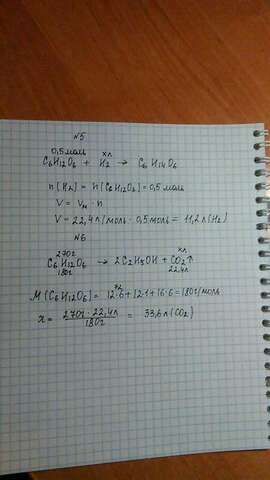 №5
0,5 моль     xл
C6H12O6 + H2 → C6H14O6
n(H2) = n(C6H12O6) = 0,5 моль
V = Vм · n
V = 22,4 л/моль · 0,5 моль = 11,2 л (H2)
№6
270г     xл
C6H12O6 → 2C2H5OH + CO2↑
180г     22,4л
M(C6H12O6) = 12·6 + 12·1 + 16·6 = 180г/моль
x = 270г · 22,4л / 180г = 33,6 л (CO2)